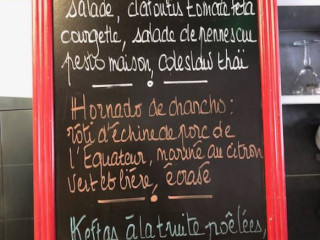 salade, clafoutis tomate feta
courgette, salade de pennes au
pesto maison, coleslaw thaï
Hornado de chancho:
rôti d'échine de porc de
l'Équateur, mariné au citron
vert et bière, écrasé
Keftas à la truite poêlées,